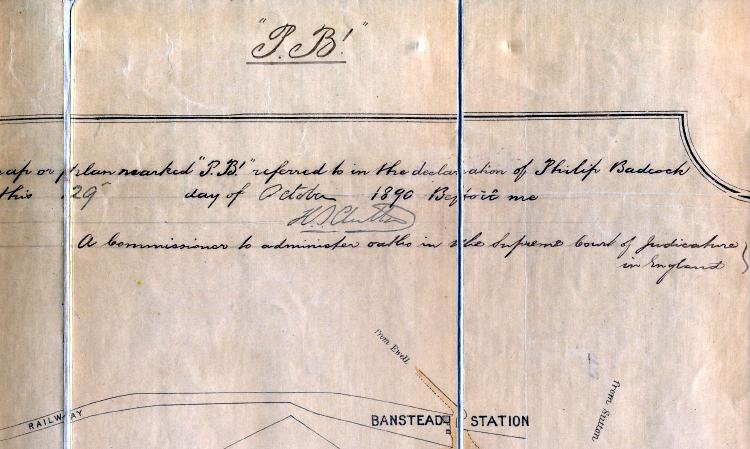 "P.B!"
map or plan marked "P.B!" referred to in the declaration of Philip Badcock
this 29 day of October 1890 Before me
A Commissioner to administer oaths in the Supreme Court of Judicature
in England
from Ewell
from Sutton
RAILWAY
BANSTEAD STATION